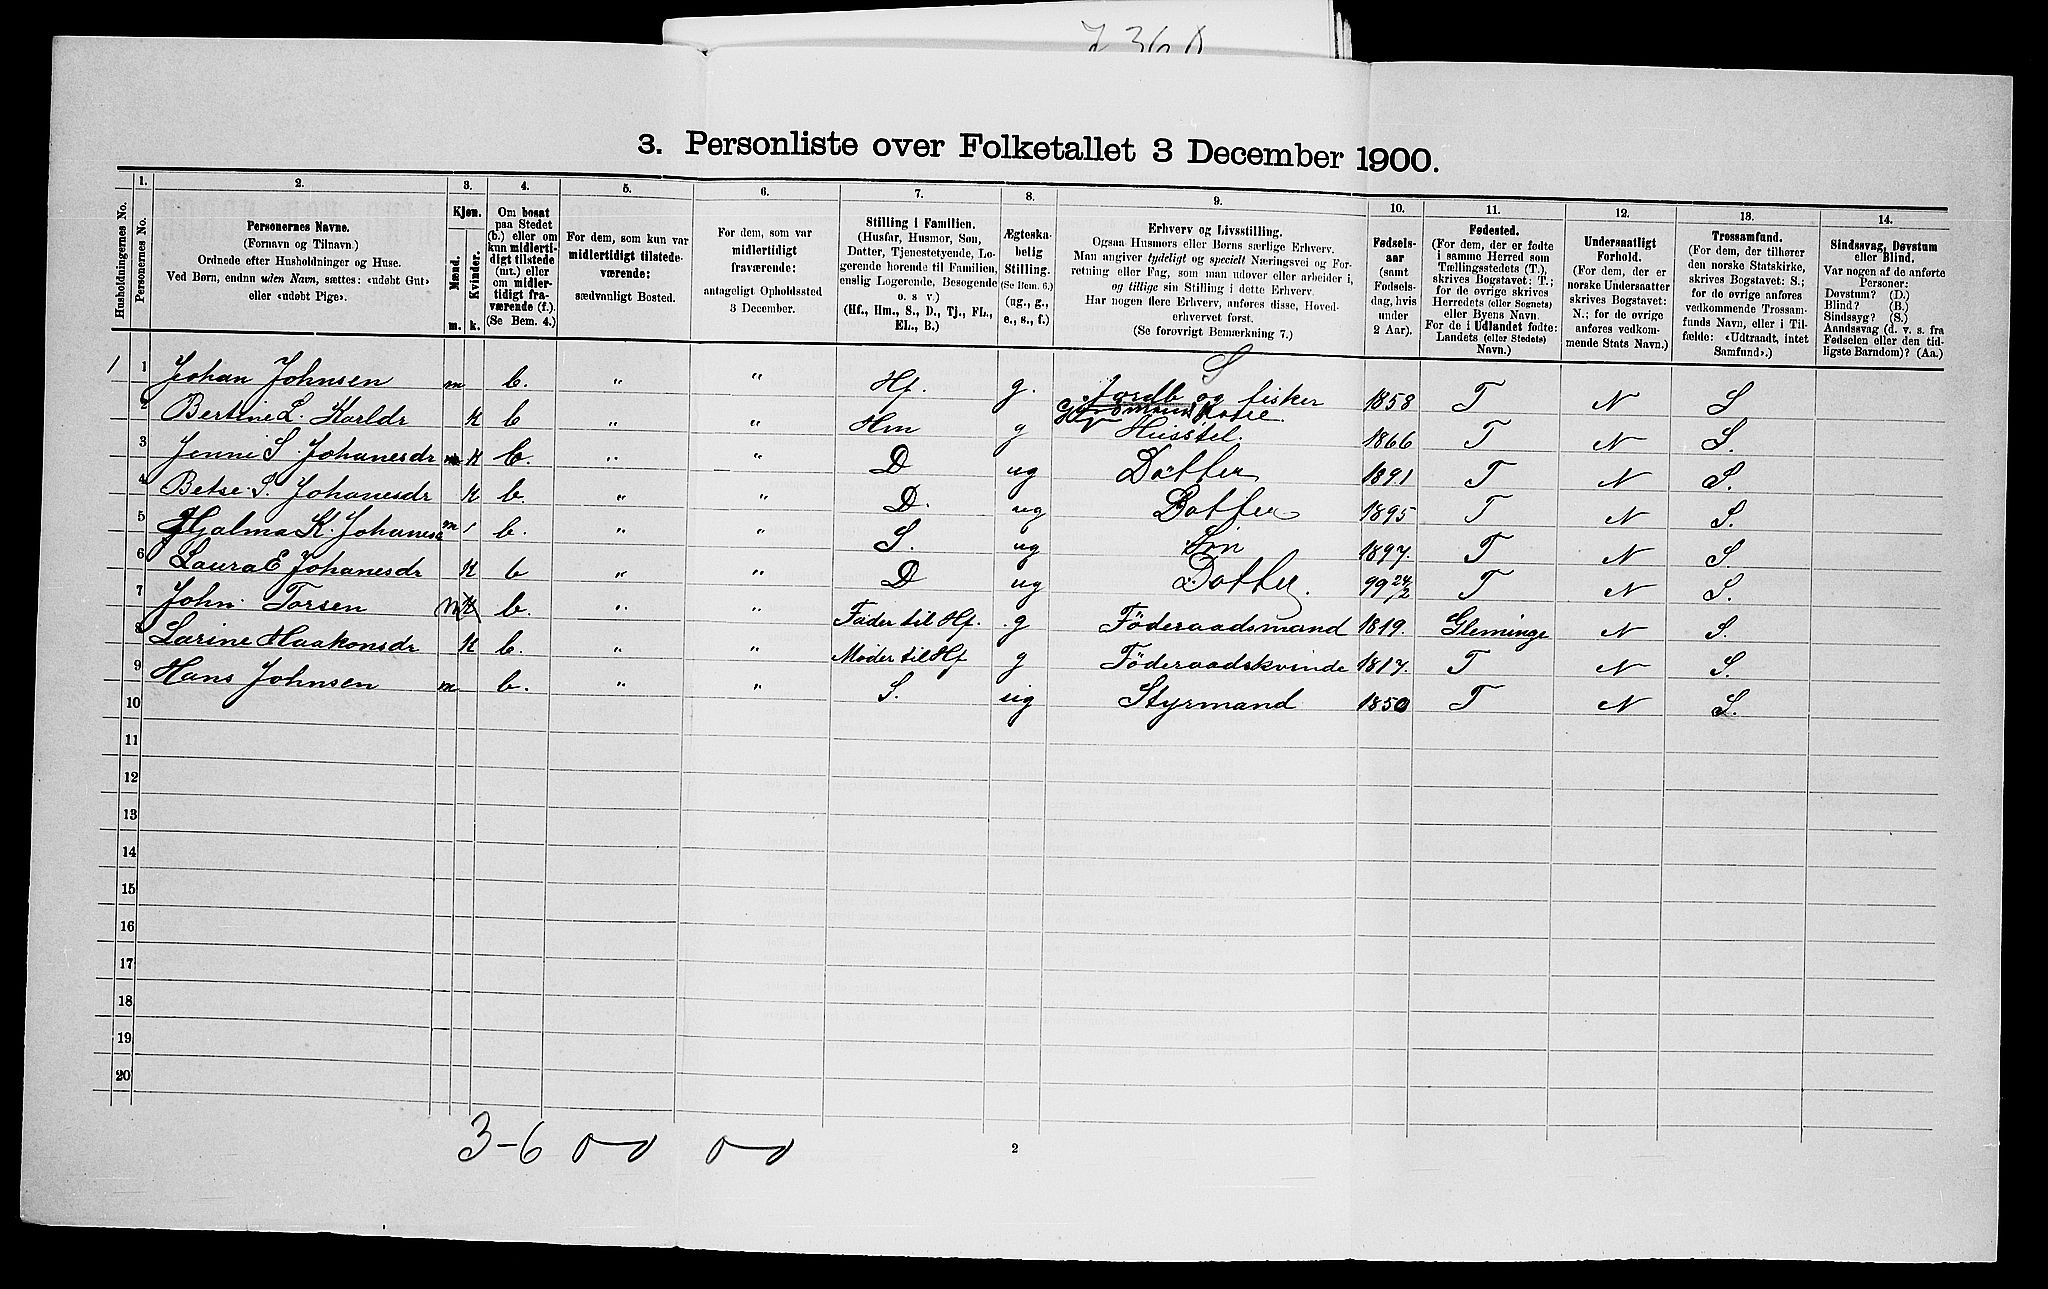 7360
3. Personliste over Folketallet 3 December 1900.
Husholdningernes No.
1.
Personernes No.
2.
Personernes Navne.
(Fornavn og Tilnavn.)
Ordnede efter Husholdninger og Huse.
Ved Børn, endnu uden Navn, sættes: «udøbt Gut»
eller «udøbt Pige».
3.
Kjøn.
Mænd.
Kvinder.
m.
k.
4.
Om bosat
paa Stedet
(b.) eller om
kun midlerti-
digt tilstede
(mt.) eller
om midler-
tidigt fra-
værende (f.).
(Se Bem. 4.)
5.
For dem, som kun var
midlertidigt tilstede-
værende:
sædvanligt Bosted.
6.
For dem, som var
midlertidigt
fraværende:
antageligt Opholdssted
3 December.
7.
Stilling i Familien.
(Husfar, Husmor, Søn,
Datter, Tjenestetyende, Lo-
gerende hørende til Familien,
enslig Logerende, Besøgende
o. s v.)
(Hf., Hm., S., D., Tj., FL.,
EL., B.)
8.
Ægteska-
belig
Stilling.
(Se Bem. 6.)
(ug., g.,
e., s., f.)
9.
Erhverv og Livsstilling.
Ogsaa Husmors eller Børns særlige Erhverv.
Man angiver tydeligt og specielt Næringsvei og For-
retning eller Fag, som man udover eller arbeider i,
og tillige sin Stilling i dette Erhverv.
Har nogen flere Erhverv, anføres disse, Hoved-
erhvervet først.
(Se forøvrigt Bemærkning 7.)
10.
Fødsels-
aar
(samt
Fødsels-
dag, hvis
under
2 Aar).
11.
Fødested.
(For dem, der er fødte
i samme Herred som
Tællingsstedets (T.),
skrives Bogstavet: T.;
for de øvrige skrives
Herredets (eller Sognets)
eller Byens Navn.
For de i Udlandet fødte:
Landets (eller Stedets)
Navn.)
12.
Undersaatligt
Forhold.
(For dem, der er
norske Undersaatter
skrives Bogstavet:
N.; for de øvrige
anføres vedkom-
mende Stats Navn.)
13.
Trossamfund.
(For dem, der tilhører
den norske Statskirke,
skrives Bogstavet: S.;
for de øvrige anføres
vedkommende Trossam-
funds Navn, eller i Til-
fælde: «Udtraadt, intet
Samfund».)
14.
Sindssvag, Døvstum
eller Blind.
Var nogen af de anførte
Personer:
Døvstum? (D.)
Blind? (B.)
Sindssyg? (S.)
Aandssvag (d. v. s. fra
Fødselen eller den tid-
ligste Barndom)? (Aa.)
S
1 1 Johan Johnsen m b. " " Hf. g. Jordb og fisker 1858 T N S
2 Bertine L. Karldr k b " " Hm g Husstel. 1866 T N S.
3 Jenni S. Johanesdr k b. " " D ug Datter 1891 T N S.
4 Betse. S. Johanesdr k b. " " D. ug Datter 1895 T N S.
5 Hjalma K. Johanes m b. " " S. ug Søn 1897. T N S.
6 Laura E Johanesdr k b " " D ug Datter. 99 24/2 T N S.
7 John Torsen m b. " " Fader til Hf. g Föderaadsmand 1819. Gleminge N S.
8 Larine Haakonsdr k b. " " Moder til Hf g Föderaadskvinde 1817. T N S.
9 Hans Johnsen m b. " " S. ug Styrmand 1850 T N S.
10
11
12
13
14
15
16
17
18
19
20
3-6 0-0 0-0
2